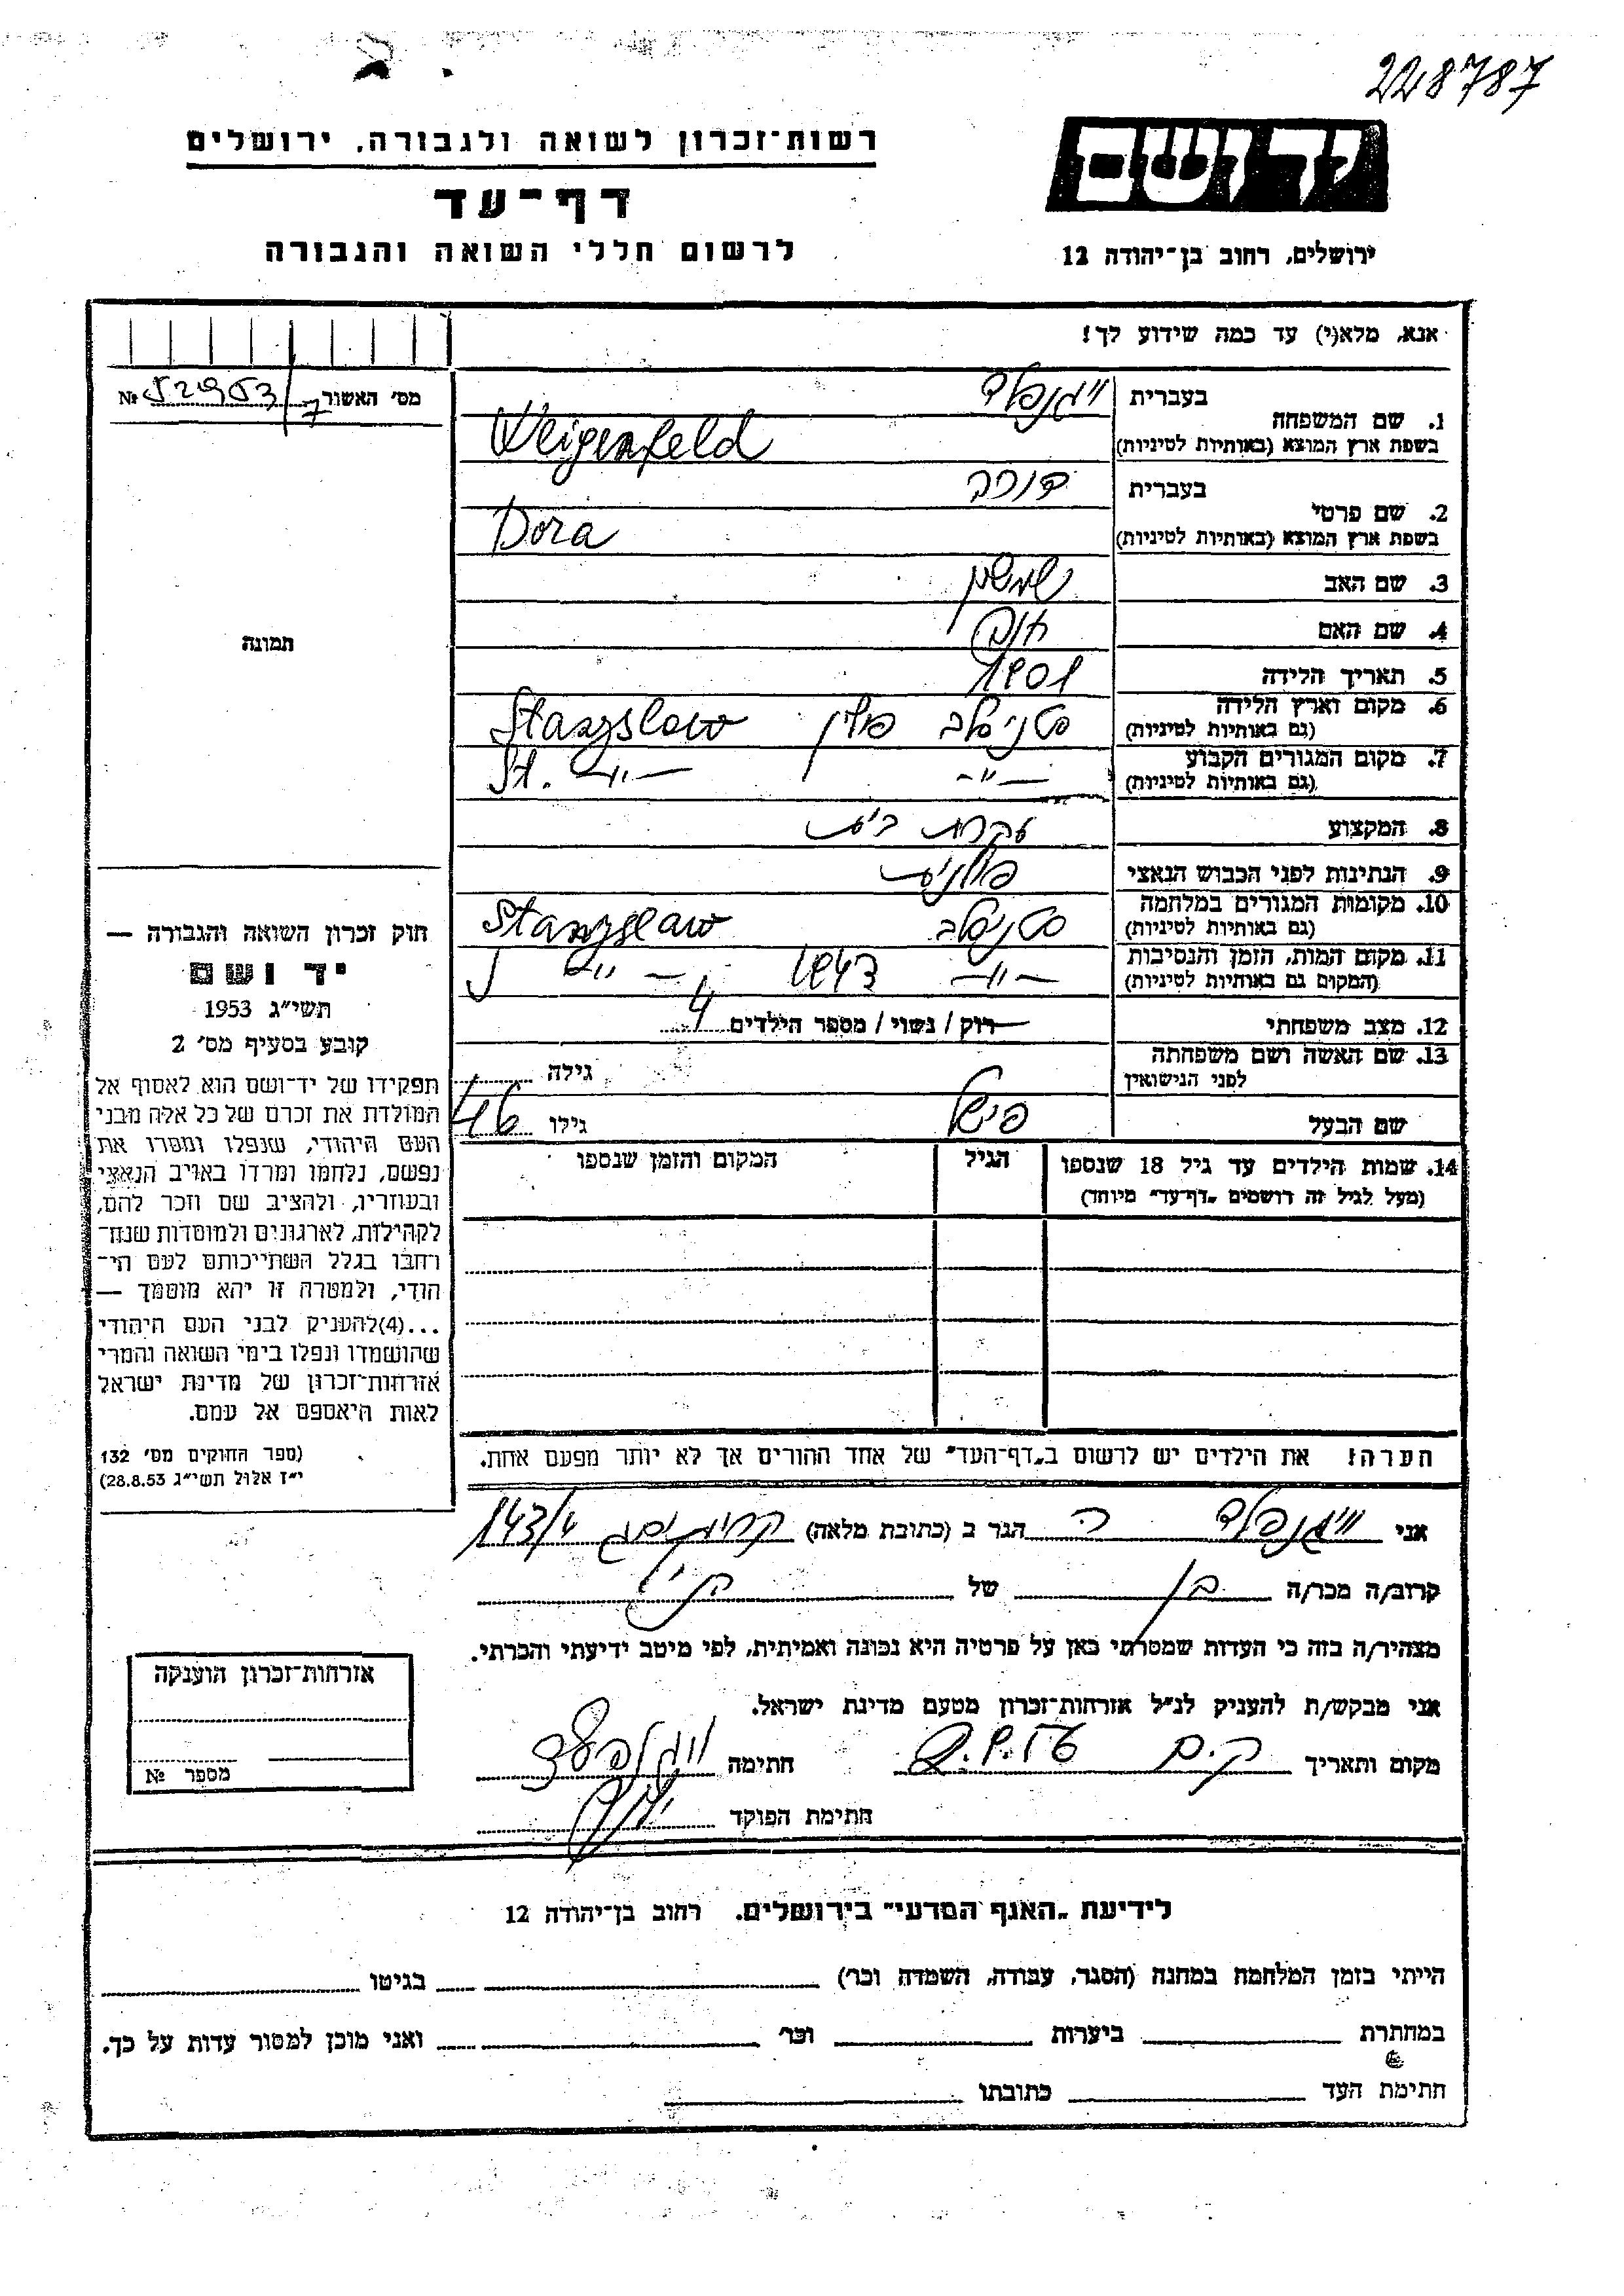 228787
רשות־זכרון לשואה ולגבורה, ירושלים
יד ושם
דף־עד
לרשום חללי השואה והגבורה
ירושלים, רחוב בן־יהודה 12
אנא, מלא(י) עד כמה שידוע לך!
מס׳ האשור № 52953/7
1. שם המשפחה
בעברית וייגנפלד
בשפת ארץ המוצא (באותיות לטיניות) Weigenfeld
2. שם פרטי
בעברית דורה
בשפת ארץ המוצא (באותיות לטיניות) Dora
3. שם האב שמשון
4. שם האם
5. תאריך הלידה 1901
6. מקום וארץ הלידה
(גם באותיות לטיניות) סטניסלב פולין Stanyslaw
7. מקום המגורים הקבוע
(גם באותיות לטיניות) —״— St. —״—
8. המקצוע עקרת בית
9. הנתינות לפני הכבוש הנאצי פולנית
10. מקומות המגורים במלחמה
(גם באותיות לטיניות) סטניסלב Stanyslaw
11. מקום המות, הזמן והנסיבות
(המקום גם באותיות לטיניות) —״— —״—
12. מצב משפחתי רוק / נשוי / מספר הילדים 4
13. שם האשה ושם משפחתה
לפני הנישואין גילה
שם הבעל פישל גילו 46
14. שמות הילדים עד גיל 18 שנספו
(מעל לגיל זה רושמים „דף־עד״ מיוחד)
הגיל
המקום והזמן שנספו
הערה! את הילדים יש לרשום ב„דף־העד״ של אחד ההורים אך לא יותר מפעם אחת.
תמונה
חוק זכרון השואה והגבורה —
יד ושם
תשי״ג 1953
קובע בסעיף מס׳ 2
תפקידו של יד־ושם הוא לאסוף אל
המולדת את זכרם של כל אלה מבני
העם היהודי, שנפלו ומסרו את
נפשם, נלחמו ומרדו באויב הנאצי
ובעוזריו, ולהציב שם וזכר להם,
לקהילות, לארגונים ולמוסדות שנח־
רבו בגלל השתייכותם לעם הי־
הודי, ולמטרה זו יהא מוסמך —
...(4)להעניק לבני העם היהודי
שהושמדו ונפלו בימי השואה והמרי
אזרחות־זכרון של מדינת ישראל
לאות היאספם אל עמם.
(ספר החוקים מס׳ 132
י״ז אלול תשי״ג 28.8.53)
אני וייגנפלד ה הגר ב (כתובת מלאה) 143/4
קרוב/ה מכר/ה בן של
מצהיר/ה בזה כי העדות שמסרתי כאן על פרטיה היא נכונה ואמיתית, לפי מיטב ידיעתי והכרתי.
אני מבקש/ת להעניק לנ״ל אזרחות־זכרון מטעם מדינת ישראל.
מקום ותאריך ק.ים חתימה
חתימת הפוקד
אזרחות־זכרון הוענקה
מספר №
לידיעת „האגף המדעי״ בירושלים. רחוב בן־יהודה 12
הייתי בזמן המלחמה במחנה (הסגר, עבודה, השמדה וכו׳) בגיטו
במחתרת ביערות וכו׳ ואני מוכן למסור עדות על כך.
חתימת העד כתובתו